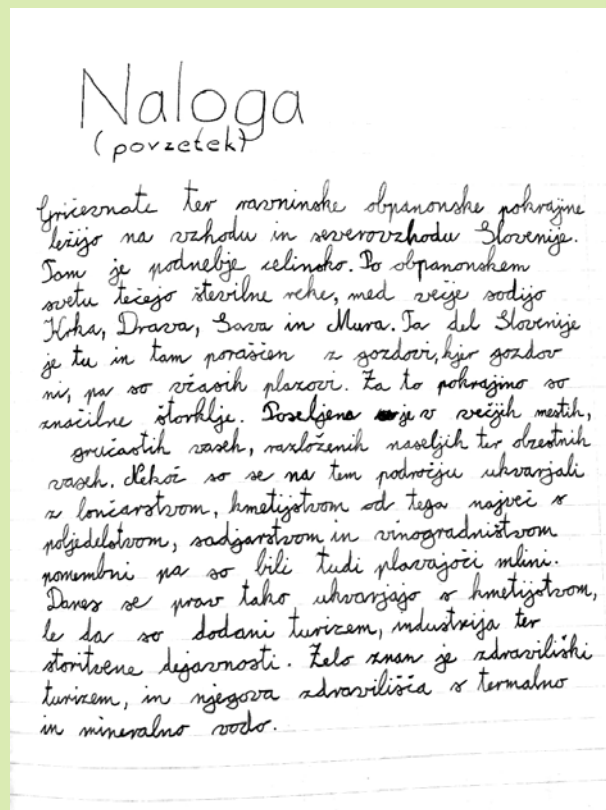 Naloga
(povzetek)
Gričevnate ter ravninske obpanonske pokrajine
ležijo na vzhodu in severovzhodu Slovenije.
Tam je podnebje celinsko. Po obpanonskem
svetu tečejo številne reke, med večje sodijo
Krka, Drava, Sava in Mura. Ta del Slovenije
je tu in tam poraščen z gozdovi, kjer gozdov
ni, pa so včasih plazovi. Za to pokrajino so
značilne štorklje. Poseljena je v večjih mestih,
gručastih vaseh, razloženih naseljih ter obcestnih
vaseh. Nekoč so se na tem področju ukvarjali
z lončarstvom, kmetijstvom od tega največ s
poljedelstvom, sadjarstvom in vinogradništvom
pomembni pa so bili tudi plavajoči mlini.
Danes se prav tako ukvarjajo s kmetijstvom,
le da so dodani turizem, industrija ter
storitvene dejavnosti. Zelo znan je zdraviliški
turizem, in njegova zdravilišča s termalno
in mineralno vodo.